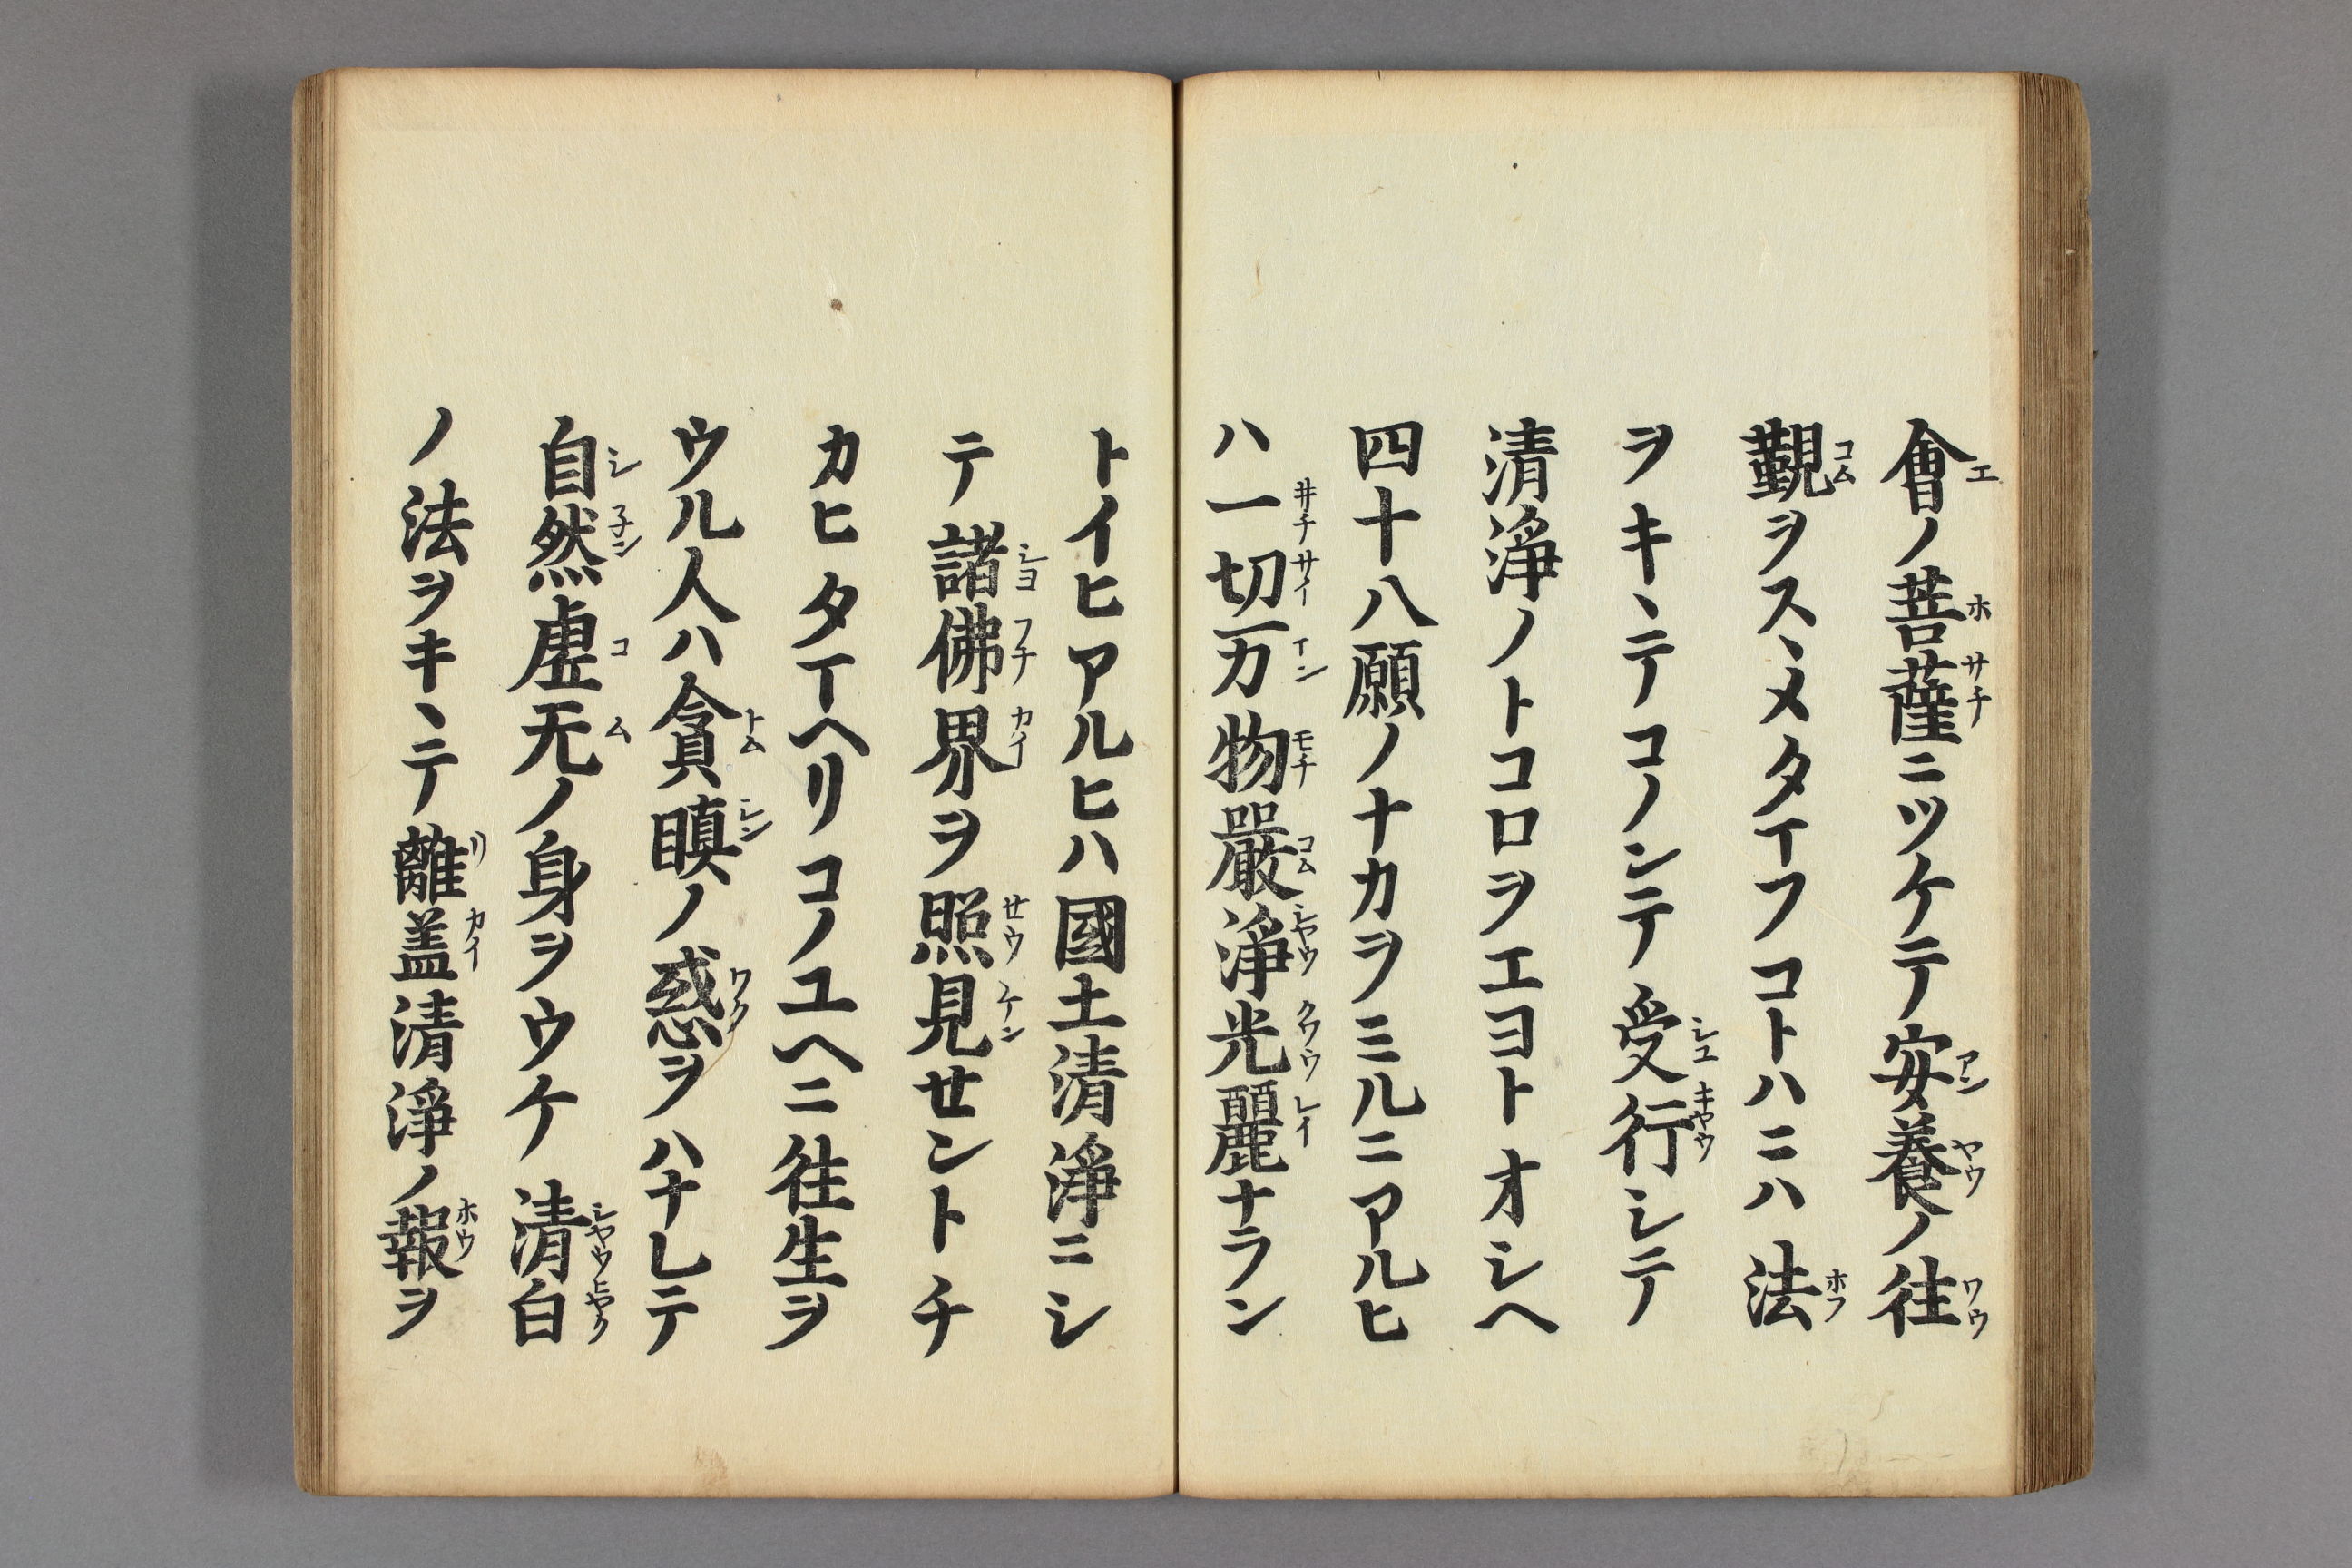 會ノ菩薩ニツケテ安養ノ往
覲ヲスヽメタイフコトハニハ法
ヲキヽテコノンテ受行シテ
清淨ノトコロヲエヨトオシヘ
四十八願ノナカヲミルニアルヒ
ハ一切万物嚴淨光麗ナラン
トイヒアルヒハ國土清淨ニシ
テ諸佛界ヲ照見せントチ
カヒタイヘリコノユヘニ往生ヲ
ウル人ハ貪瞋ノ惑ヲハナレテ
自然虚无ノ身ヲウケ清白
ノ法ヲキヽテ離盖清淨ノ報ヲ